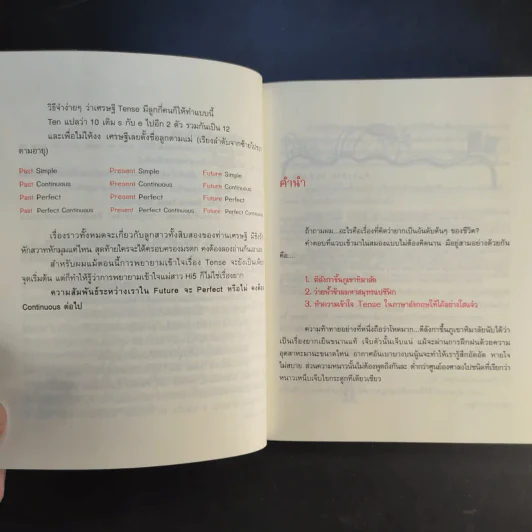 วิธีจำง่ายๆ ว่าเศรษฐี Tense มีลูกกี่คนก็ให้ทำแบบนี้
Ten แปลว่า 10 เติม s กับ e ไปอีก 2 ตัว รวมกันเป็น 12
และเพื่อไม่ให้งง เศรษฐีเลยตั้งชื่อลูกตามแม่ (เรียงลำดับจากซ้ายไปขวา
ตามอายุ)
Past Simple Present Simple Future Simple
Past Continuous Present Continuous Future Continuous
Past Perfect Present Perfect Future Perfect
Past Perfect Continuous Present Perfect Continuous Future Perfect Continuous
เรื่องราวทั้งหมดจะเกี่ยวกับลูกสาวทั้งสิบสองของท่านเศรษฐี
หักสวาทหักมุมแค่ไหน สุดท้ายใครจะได้ครอบครองมรดก คงต้องลองอ่านกันเอาเอง
สำหรับผมแม้ตอนนี้การพยายามเข้าใจเรื่อง Tense จะยังเป็นเพียง
จุดเริ่มต้น แต่ก็ทำให้รู้ว่าการพยายามเข้าใจแม่สาว Hi5 ก็ไม่ใช่เรื่องยาก
ความสัมพันธ์ระหว่างเราใน Future จะ Perfect หรือไม่ คงต้อง
Continuous ต่อไป
คำนำ
ถ้าถามผม...อะไรคือเรื่องที่คิดว่ายากเป็นอันดับต้นๆ ของชีวิต?
คำตอบที่แวบเข้ามาในสมองแบบไม่ต้องคิดนาน มีอยู่สามอย่างด้วยกัน
คือ...
1. ตีลังกาขึ้นภูเขาหิมาลัย
2. ว่ายน้ำข้ามมหาสมุทรแปซิฟิก
3. ทำความเข้าใจ Tense ในภาษาอังกฤษให้ได้อย่างใสแจ๋ว
ความท้าทายอย่างที่หนึ่งถือว่าโหดมาก...ตีลังกาขึ้นภูเขาหิมาลัยนับได้ว่า
เป็นเรื่องยากเย็นขนานแท้ เจ็บตัวนั้นเจ็บแน่ แม้จะผ่านการฝึกฝนด้วยความ
อุตสาหะมานะขนาดไหน อากาศอันเบาบางบนนู้นจะทำให้เรารู้สึกอึดอัด หายใจ
ไม่สบาย ส่วนความหนาวนั้นไม่ต้องพูดถึงกันละ ต่ำกว่าศูนย์องศาลงไปชนิดที่เรียกว่า
หนาวเหน็บเจ็บไขกระดูกทีเดียวเชียว